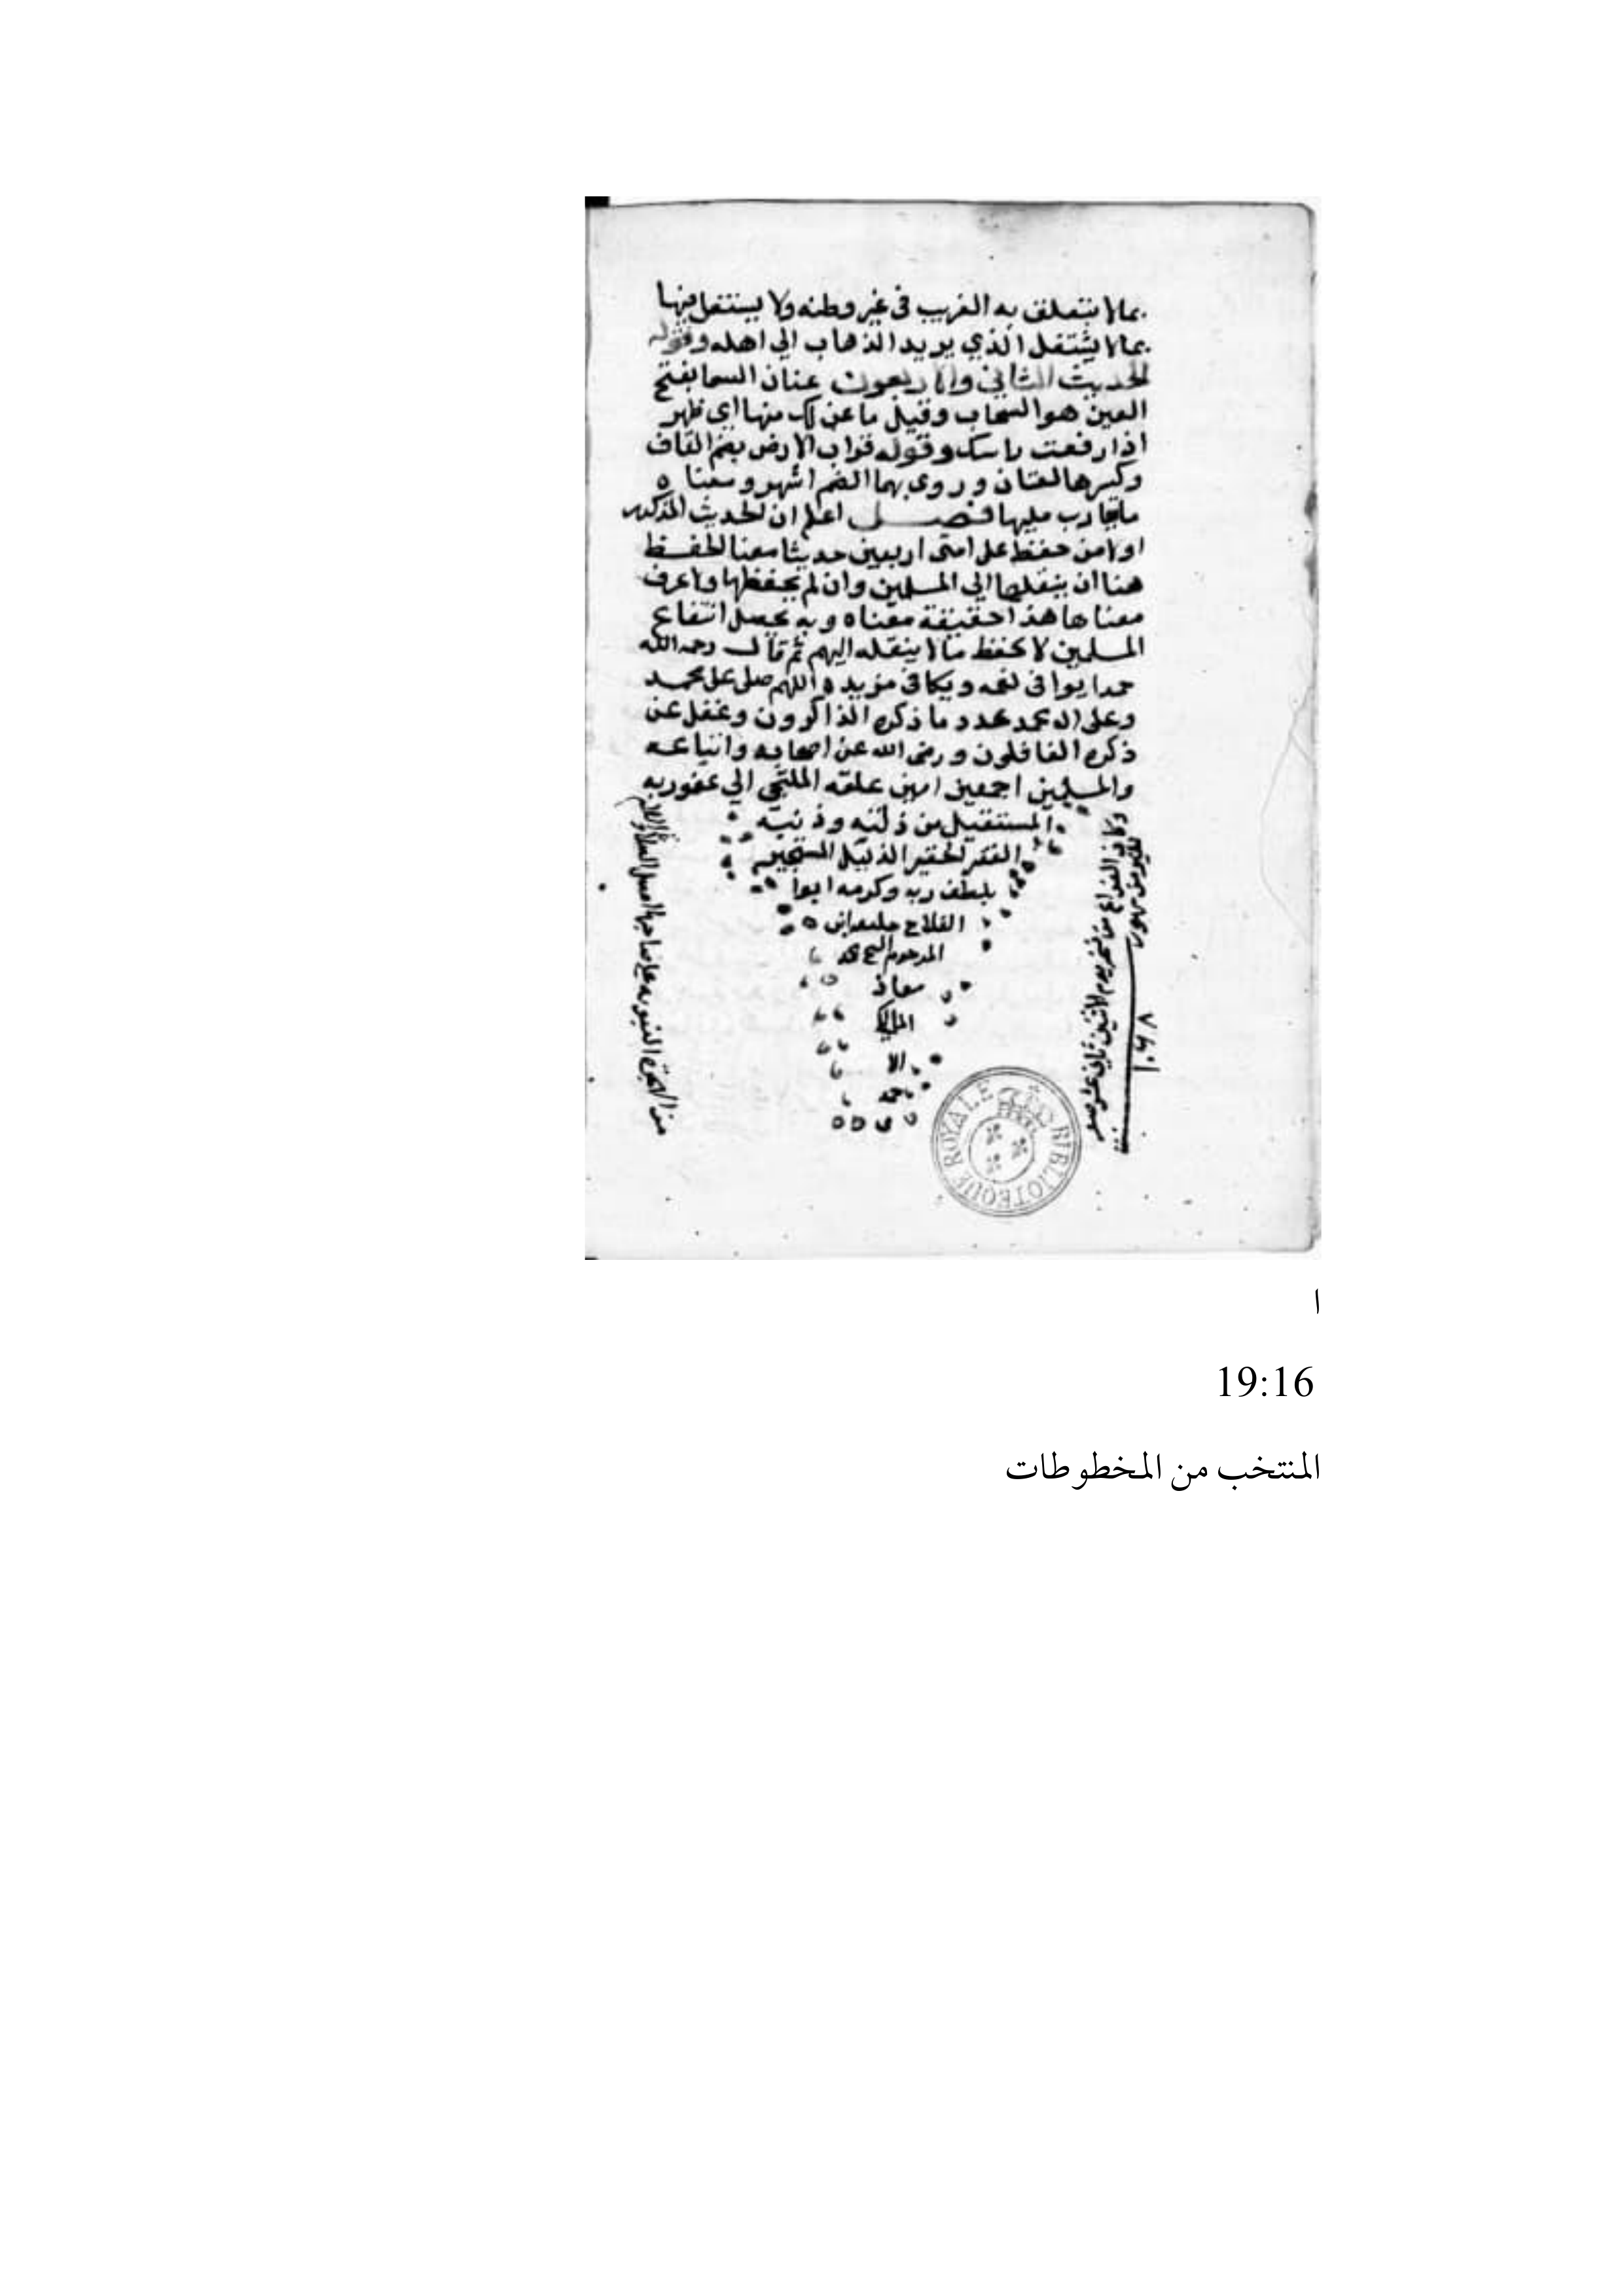 بما لا يتعلق به الغريب في غير وطنه ولا يشتغل فيها
بما لا يشتغل الذي يريد الذهاب الي اهله وقوله
الحديث الثاني والاربعون عنان السما بفتح
العين هو السحاب وقيل ما عن لك منها اي ظهر
اذا رفعت راسك وقوله قراب الارض بضم القاف
وكسرها لغتان وروي بهما الضم اشهر ومعناه
ما يقارب مليها فصل اعلم ان الحديث المذكور
اولا من حفظ على امتي اربعين حديثا معنا الحفظ
هنا ان ينقلها الي المسلمين وان لم يحفظها ولا عرف
معناها هذا حقيقة معناه وبه يحصل انتفاع
المسلمين لا بحفظ ما لا ينقله اليهم ثم قال رحمه الله
حمدا يوافي نعمه ويكافي مزيده اللهم صلى على محمد
وعلى ال محمد عدد ما ذكره الذاكرون وغفل عن
ذكره الغافلون ورضى الله عن اصحابه واتباعه
والمسلمين اجمعين امين علقه الملتجي الي عفو ربه
المستقيل من زلته وذنبه
الفقر الحقير الذليل المستجير
بلطف ربه وكرمه ابوا
الفلاح ابن
المرحوم
معاذ
المالكي
وكان الفراغ من يوم الاثنين ثاني عشر صفر
من الهجرة النبويه على صاحبها افضل الصلاة والسلام
BIBLIOTEQUE ROYALE
ا
19:16
المنتخب من المخطوطات